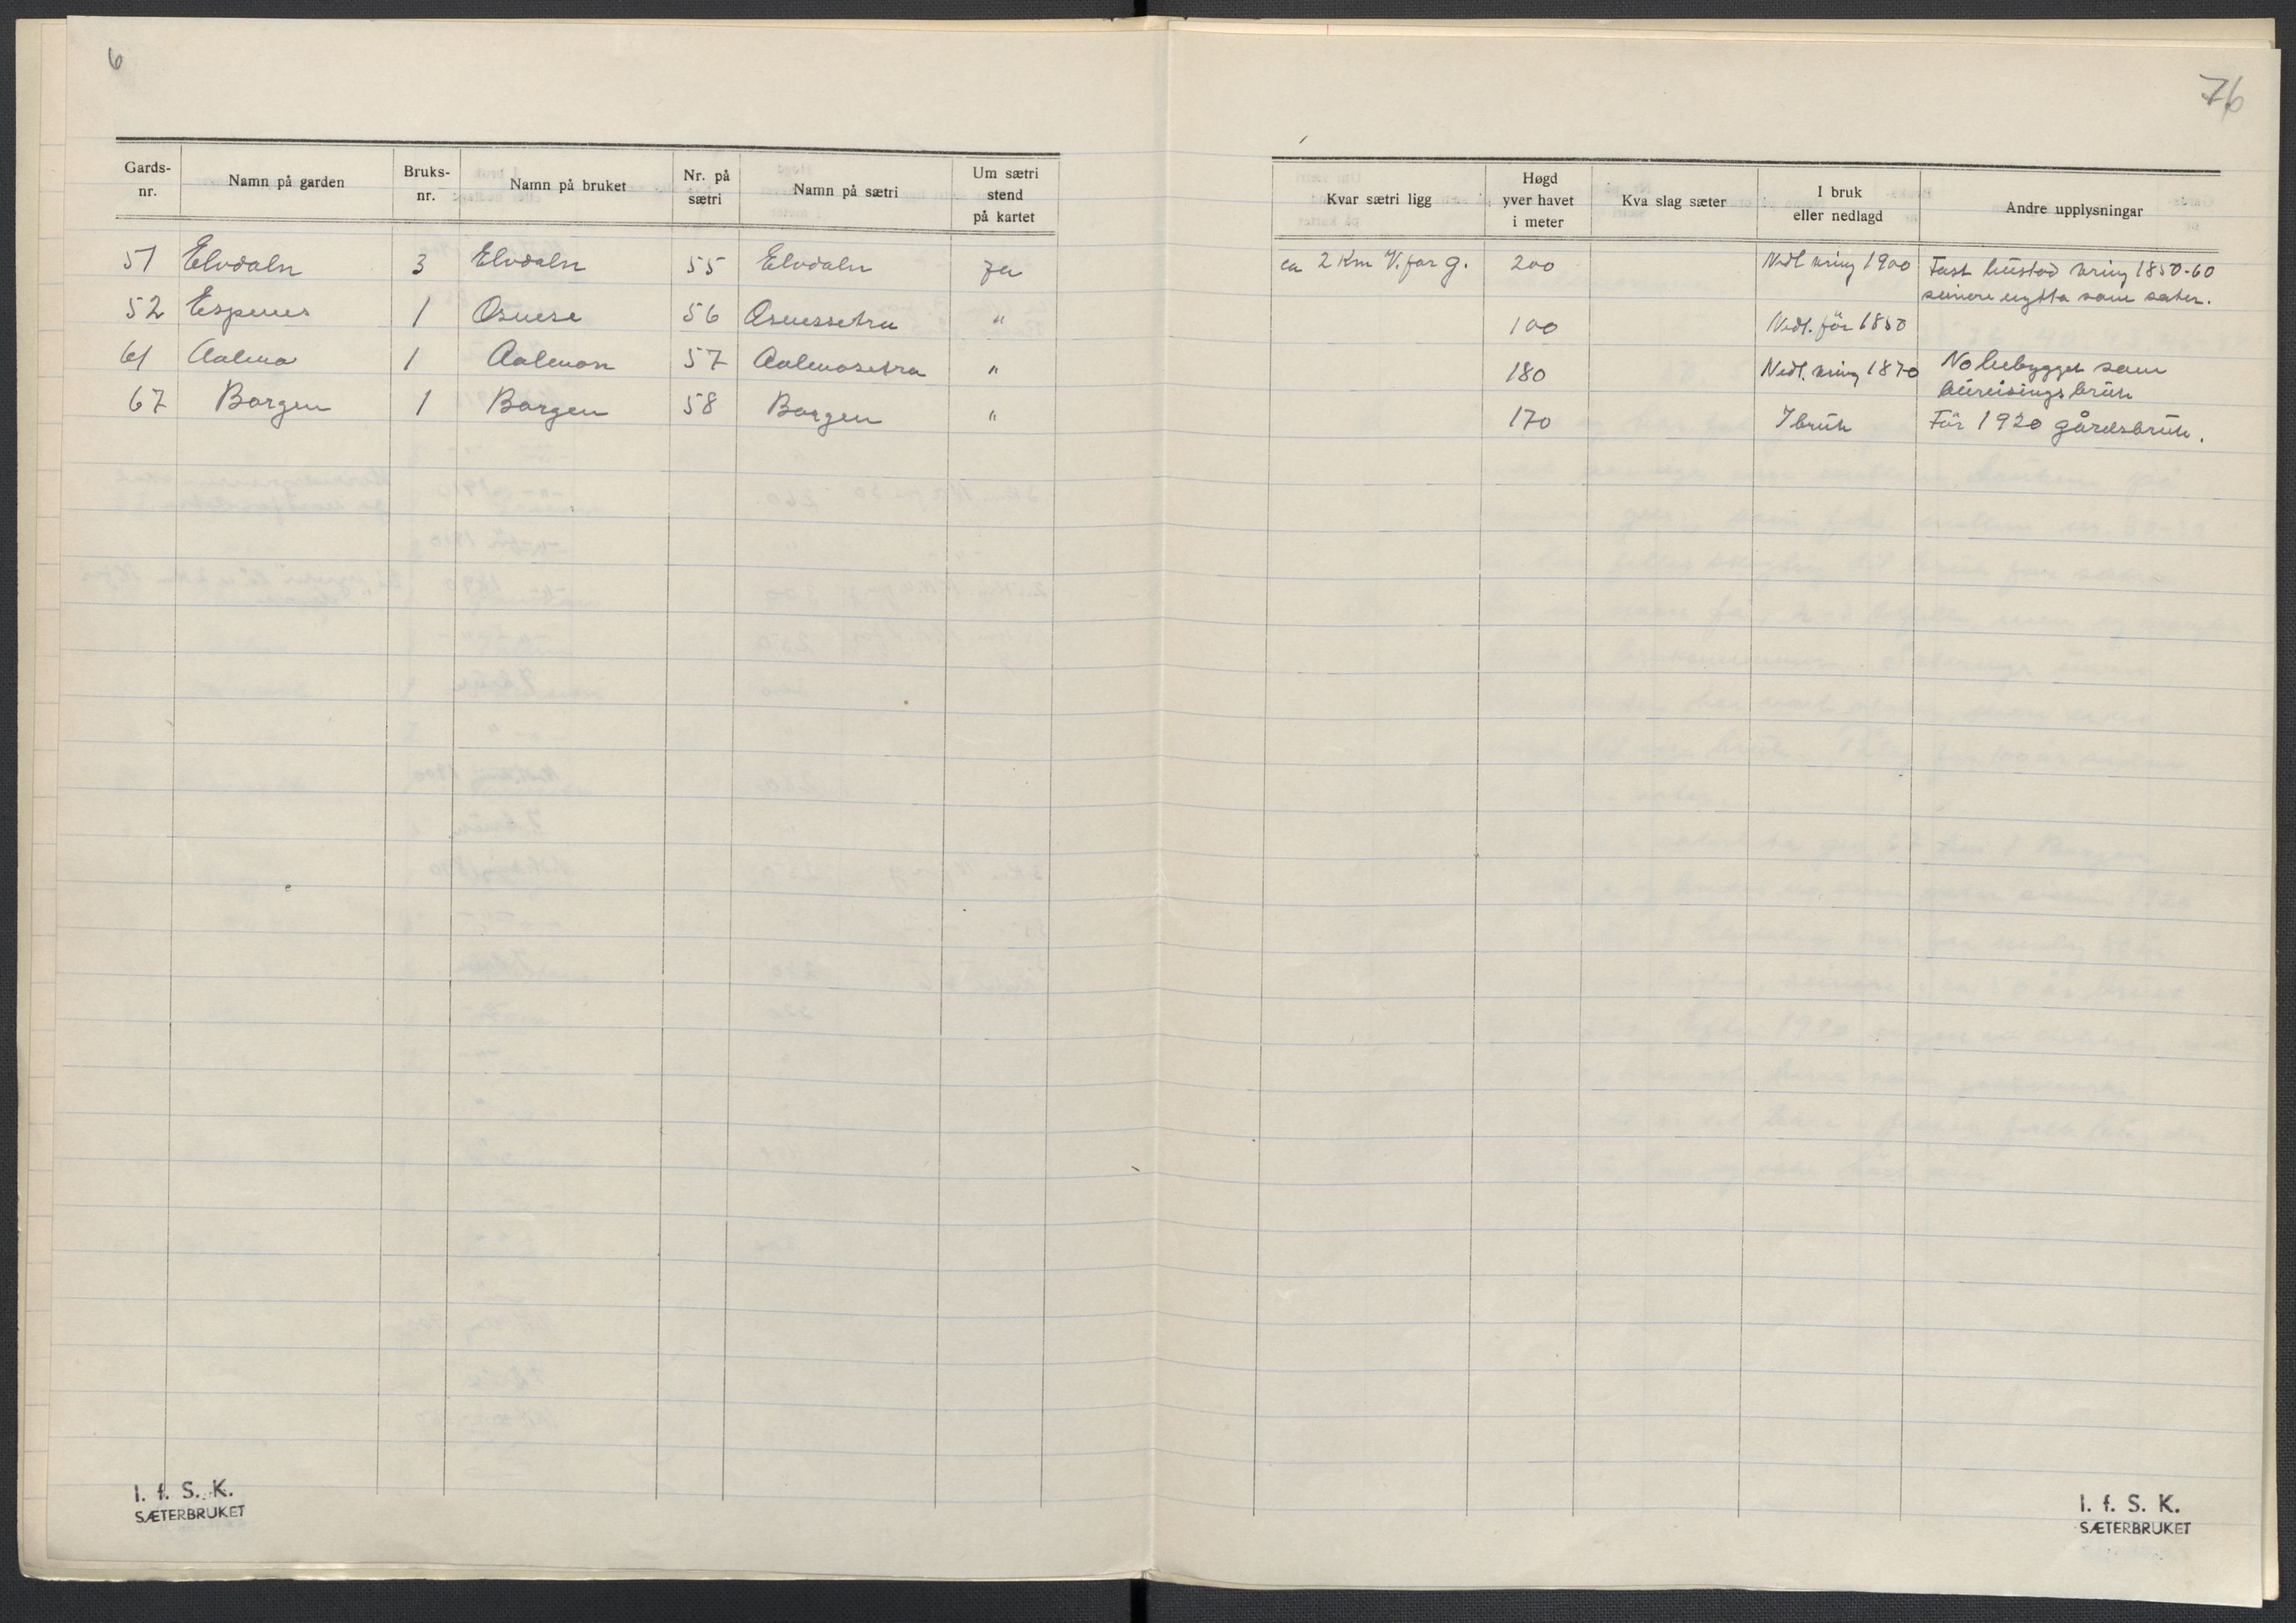 6
76
Gards-nr. Namn på garden Bruks-nr. Namn på bruket Nr. på sætri Namn på sætri Um sætri stend på kartet Kvar sætri ligg Høgd yver havet i meter Kva slag sæter I bruk eller nedlagd Andre upplysningar
51 Elvdaln 3 Elvdaln 55 Elvdaln ja ca 2 Km V. for g. 200 Nedl kring 1900 Fast bustad kring 1850-60
seinere nytta som sæter.
52 Espenes 1 Osnese 56 Osnessetra " 100 Nedl. før 1850
61 Aalmo 1 Aalmon 57 Aalmosetra " 180 Nedl. kring 1870 No utbygget som
bureisingsbruk
67 Borgen 1 Borgen 58 Borgen " 170 I bruk Før 1920 gårdsbruk.
I. f. S. K.
SÆTERBRUKET
I. f. S. K.
SÆTERBRUKET